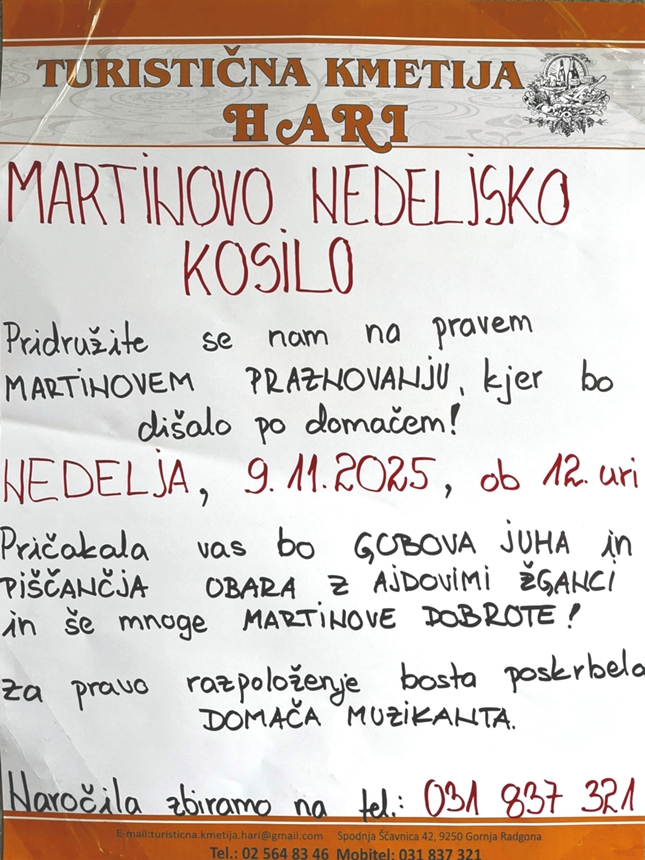 TURISTIČNA KMETIJA
HARI
MARTINOVO NEDELJSKO
KOSILO
Pridružite se nam na pravem
MARTINOVEM PRAZNOVANJU, kjer bo
dišalo po domačem!
NEDELJA, 9.11.2025, ob 12. uri
Pričakala vas bo GOBOVA JUHA in
PIŠČANČJA OBARA Z AJDOVIMI ŽGANCI
in še mnoge MARTINOVE DOBROTE!
za pravo razpoloženje bosta poskrbela
DOMAČA MUZIKANTA.
Naročila zbiramo na tel.: 031 837 321
E-mail:turisticna.kmetija.hari@gmail.com Spodnja Ščavnica 42, 9250 Gornja Radgona
Tel.: 02 564 83 46 Mobitel: 031 837 321